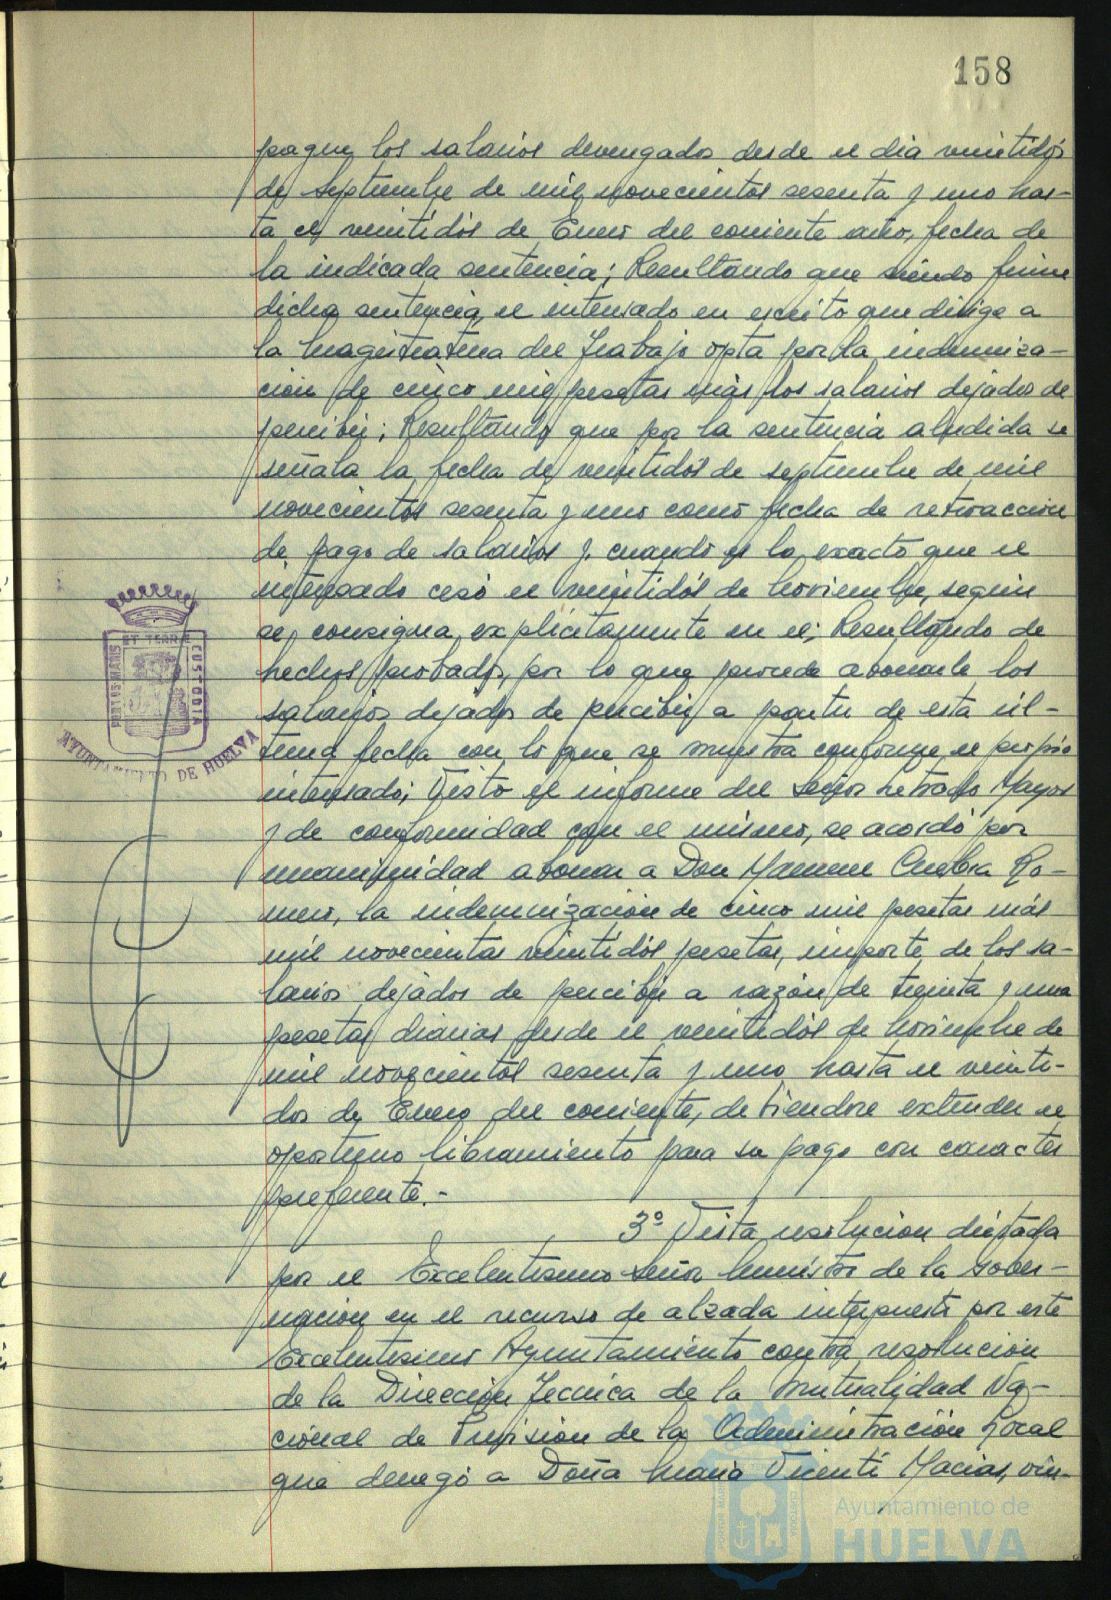 158
pague los salarios devengados desde el dia veintidós
de Septiembre de mil novecientos sesenta y uno has-
ta el veintidós de Enero del corriente año, fecha de
la indicada sentencia; Resultando que siendo firme
dicha sentencia, el interesado en escrito que dirige a
la Magistratura del Trabajo opta por la indemniza-
ción de cinco mil pesetas más los salarios dejados de
percibir; Resultando que por la sentencia aludida se
señala la fecha de veintidós de septiembre de mil
novecientos sesenta y uno como fecha de retroaccion
de pago de salarios y cuando es lo exacto que el
interesado cesó el veintidós de Noviembre, según
se consigna explícitamente en el; Resultando de
hechos probados, por lo que procede abonarle los
salarios dejados de percibir a partir de esta úl-
tima fecha con lo que se muestra conforme el propio
interesado; Visto el informe del Señor Letrado Mayor
y de conformidad con el mismo, se acordó por
unanimidad abonar a Don Manuel Ro-
mero, la indemnización de cinco mil pesetas más
mil novecientas veintidós pesetas, importe de los sa-
larios dejados de percibir a razón de treinta y una
pesetas diarias desde el veintidós de Noviembre de
mil novecientos sesenta y uno hasta el veinti-
dos de Enero del corriente, debiendose extender el
oportuno libramiento para su pago con caracter
preferente.-
3º Vista resolucion dictada
por el Excelentisimo Señor Ministro de la Gober-
nacion en el recurso de alzada interpuesto por este
Excelentisimo Ayuntamiento contra resolucion
de la Dirección Tecnica de la Mutualidad Na-
cional de Prevision de la Administración Local
que denegó a Doña Maria Vicenti Macias, viu-
PORTUS MARIS ET TERRE CUSTODIA
AYUNTAMIENTO DE HUELVA
Ayuntamiento de
HUELVA